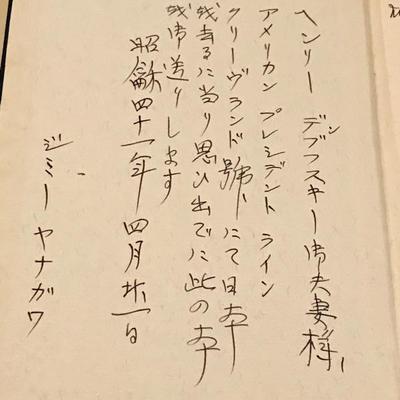 ヘンリー デンブフスキー御夫妻様
アメリカン プレシデント ライン
クリーヴランド號にて日本
を去るに当り思ひ出でに此の本
を御送りします
昭龢四十一年 四月廿一日
ジミー ヤナガワ